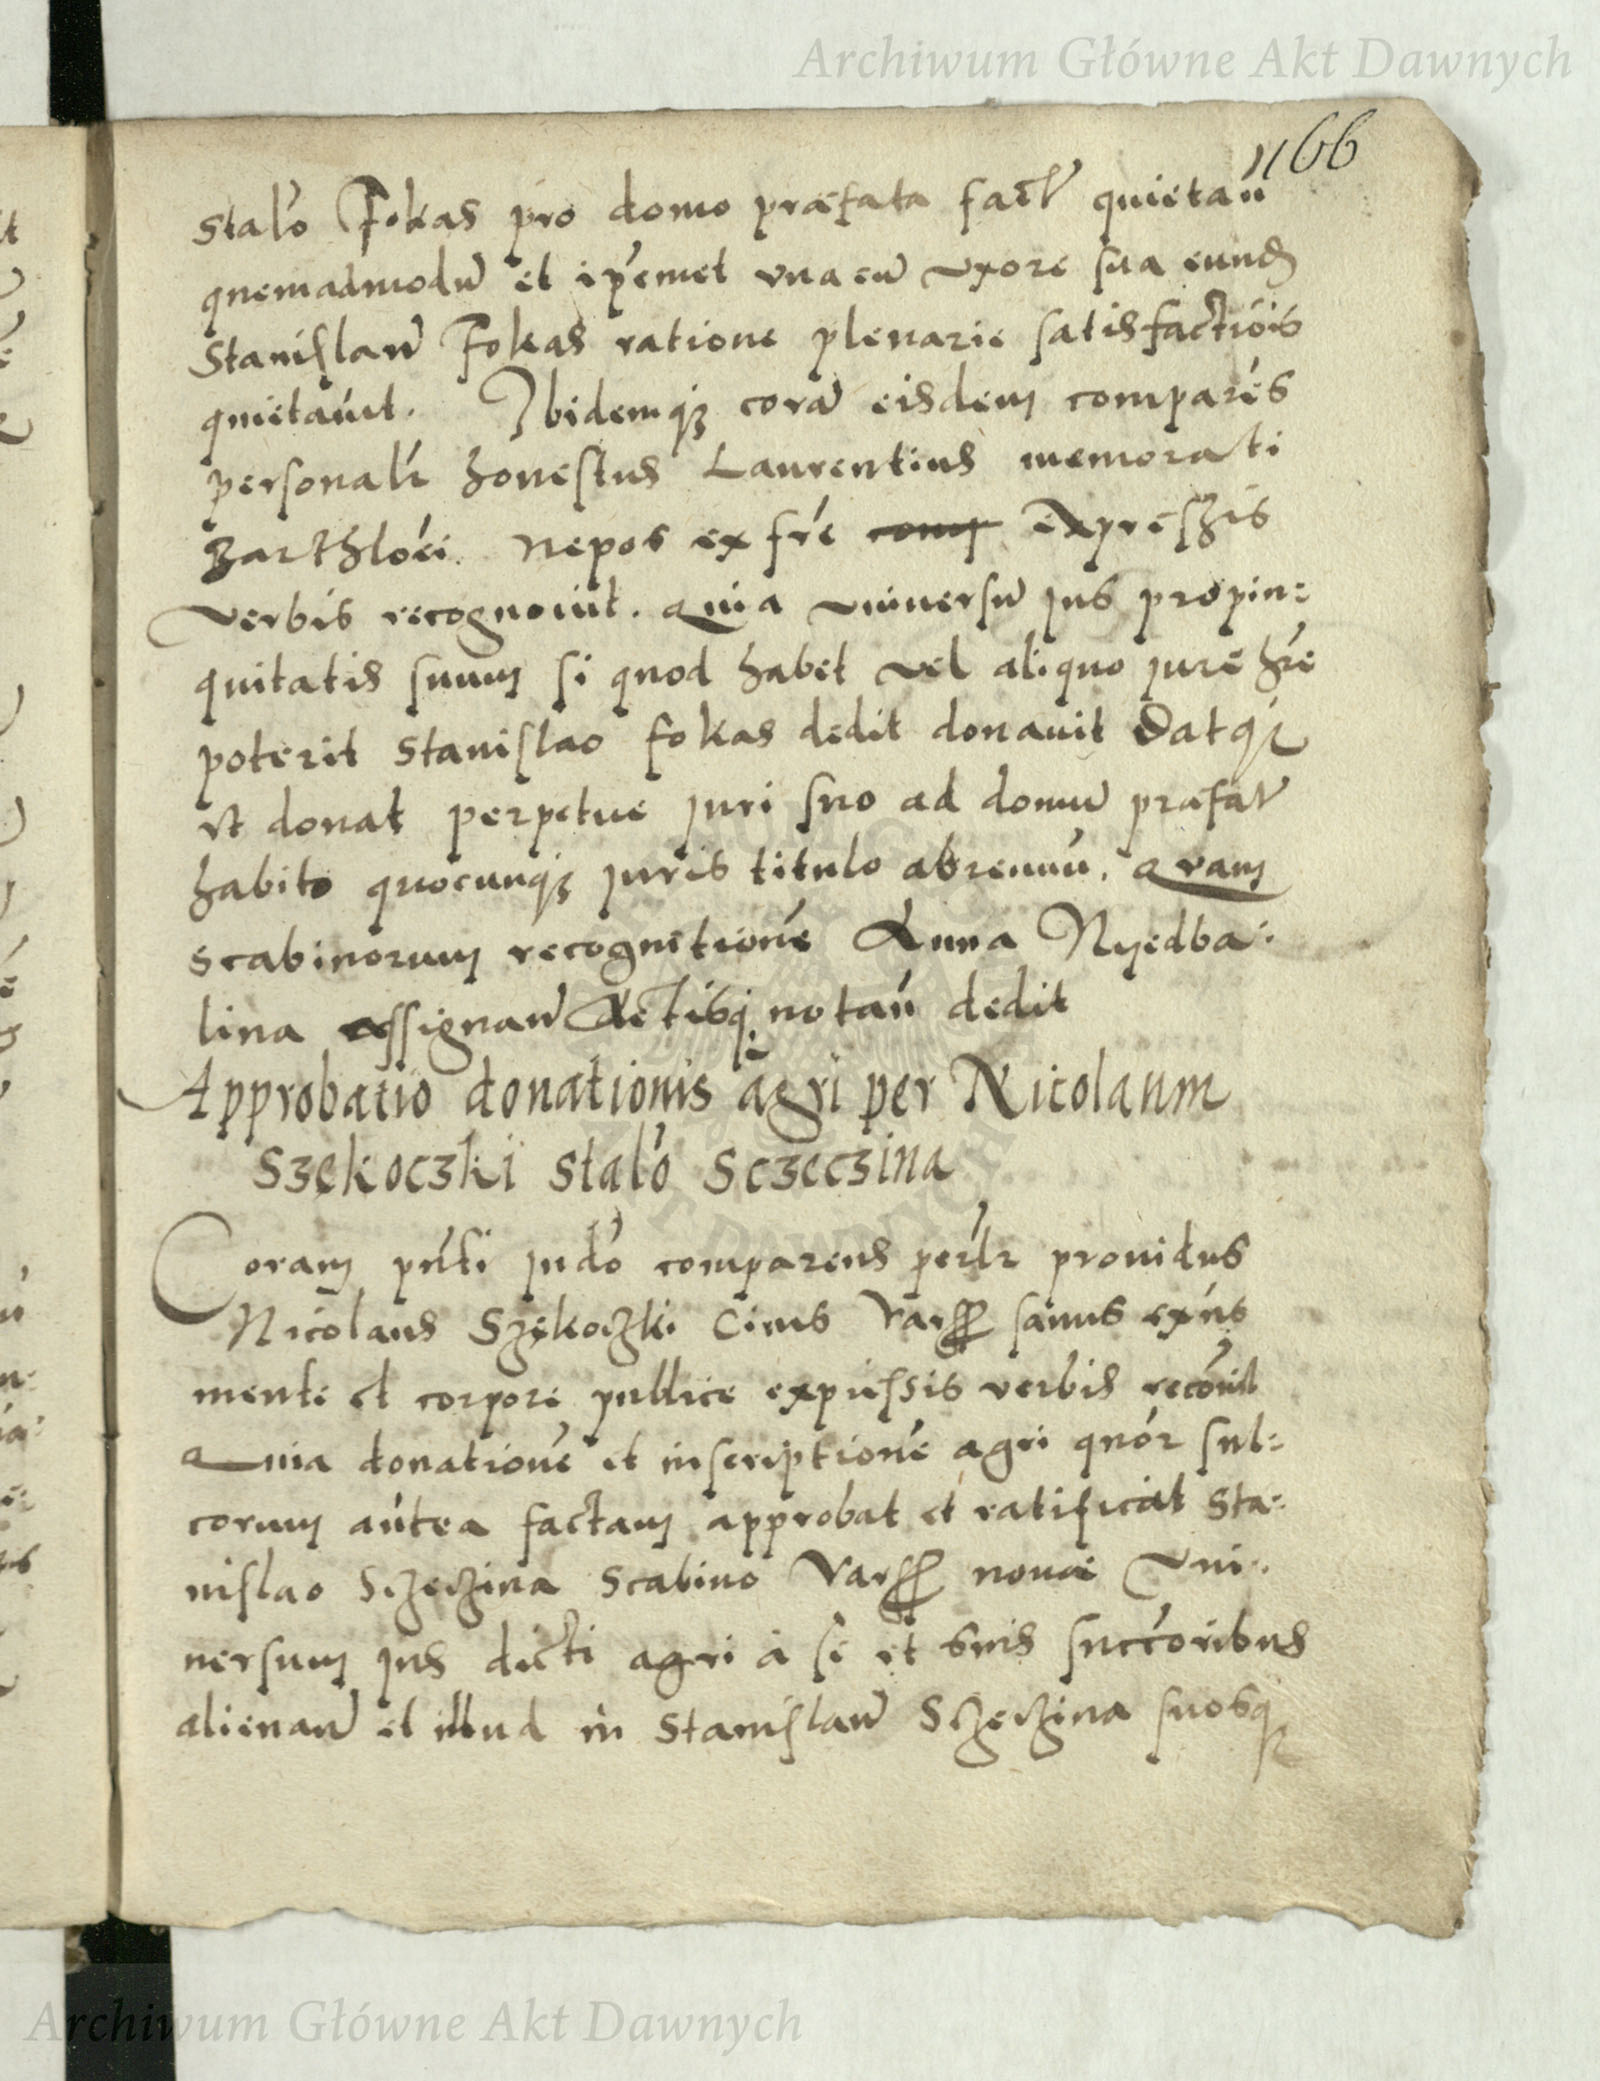 Archiwum Główne Akt Dawnych
1166
Stalo Fokas pro domo præfata fact quietaũ
quemadmodũ et ipemet vna cũ vxore sua eund
Stanislaũ Fokas ratione plenarie satisfactiois
quietauit. Ibidemq corã eisdem compares
personalr honestus Laurentius memorati
Barthloei. Nepos ex fre expreszis
verbis recognouit. Quia vniuersũ jus propin:
quitatis suum si quod habet vel aliquo jure hre
poterit Stanislao Fokas dedit donauit Datq
vt donat perpetue juri suo ad domũ præfat
habito quocunq juris titulo abrenuũ. Quam
scabinorum recognitionē Anna Nyedba:
lina assignaũ Actisq notaũ dedit
Approbatio donationis agri per Nicolaum
Szękoczki Stalo Sczeczina
Coram pnti judo comparens perlr prouidus
Nicolaus Szękoczki Ciuis Vars sanus exns
mente et corpore publice expressis verbis recouit
Quia donationē et inscriptionē agri quor sul:
corum antea factam approbat et ratificat Sta:
nislao Sczeczina Scabino Vars nouæ Vni:
uersum jus dicti agri a se et suis succoribus
alienaũ et illud in Stanislaũ Sczeczina suosq
Archiwum Główne Akt Dawnych